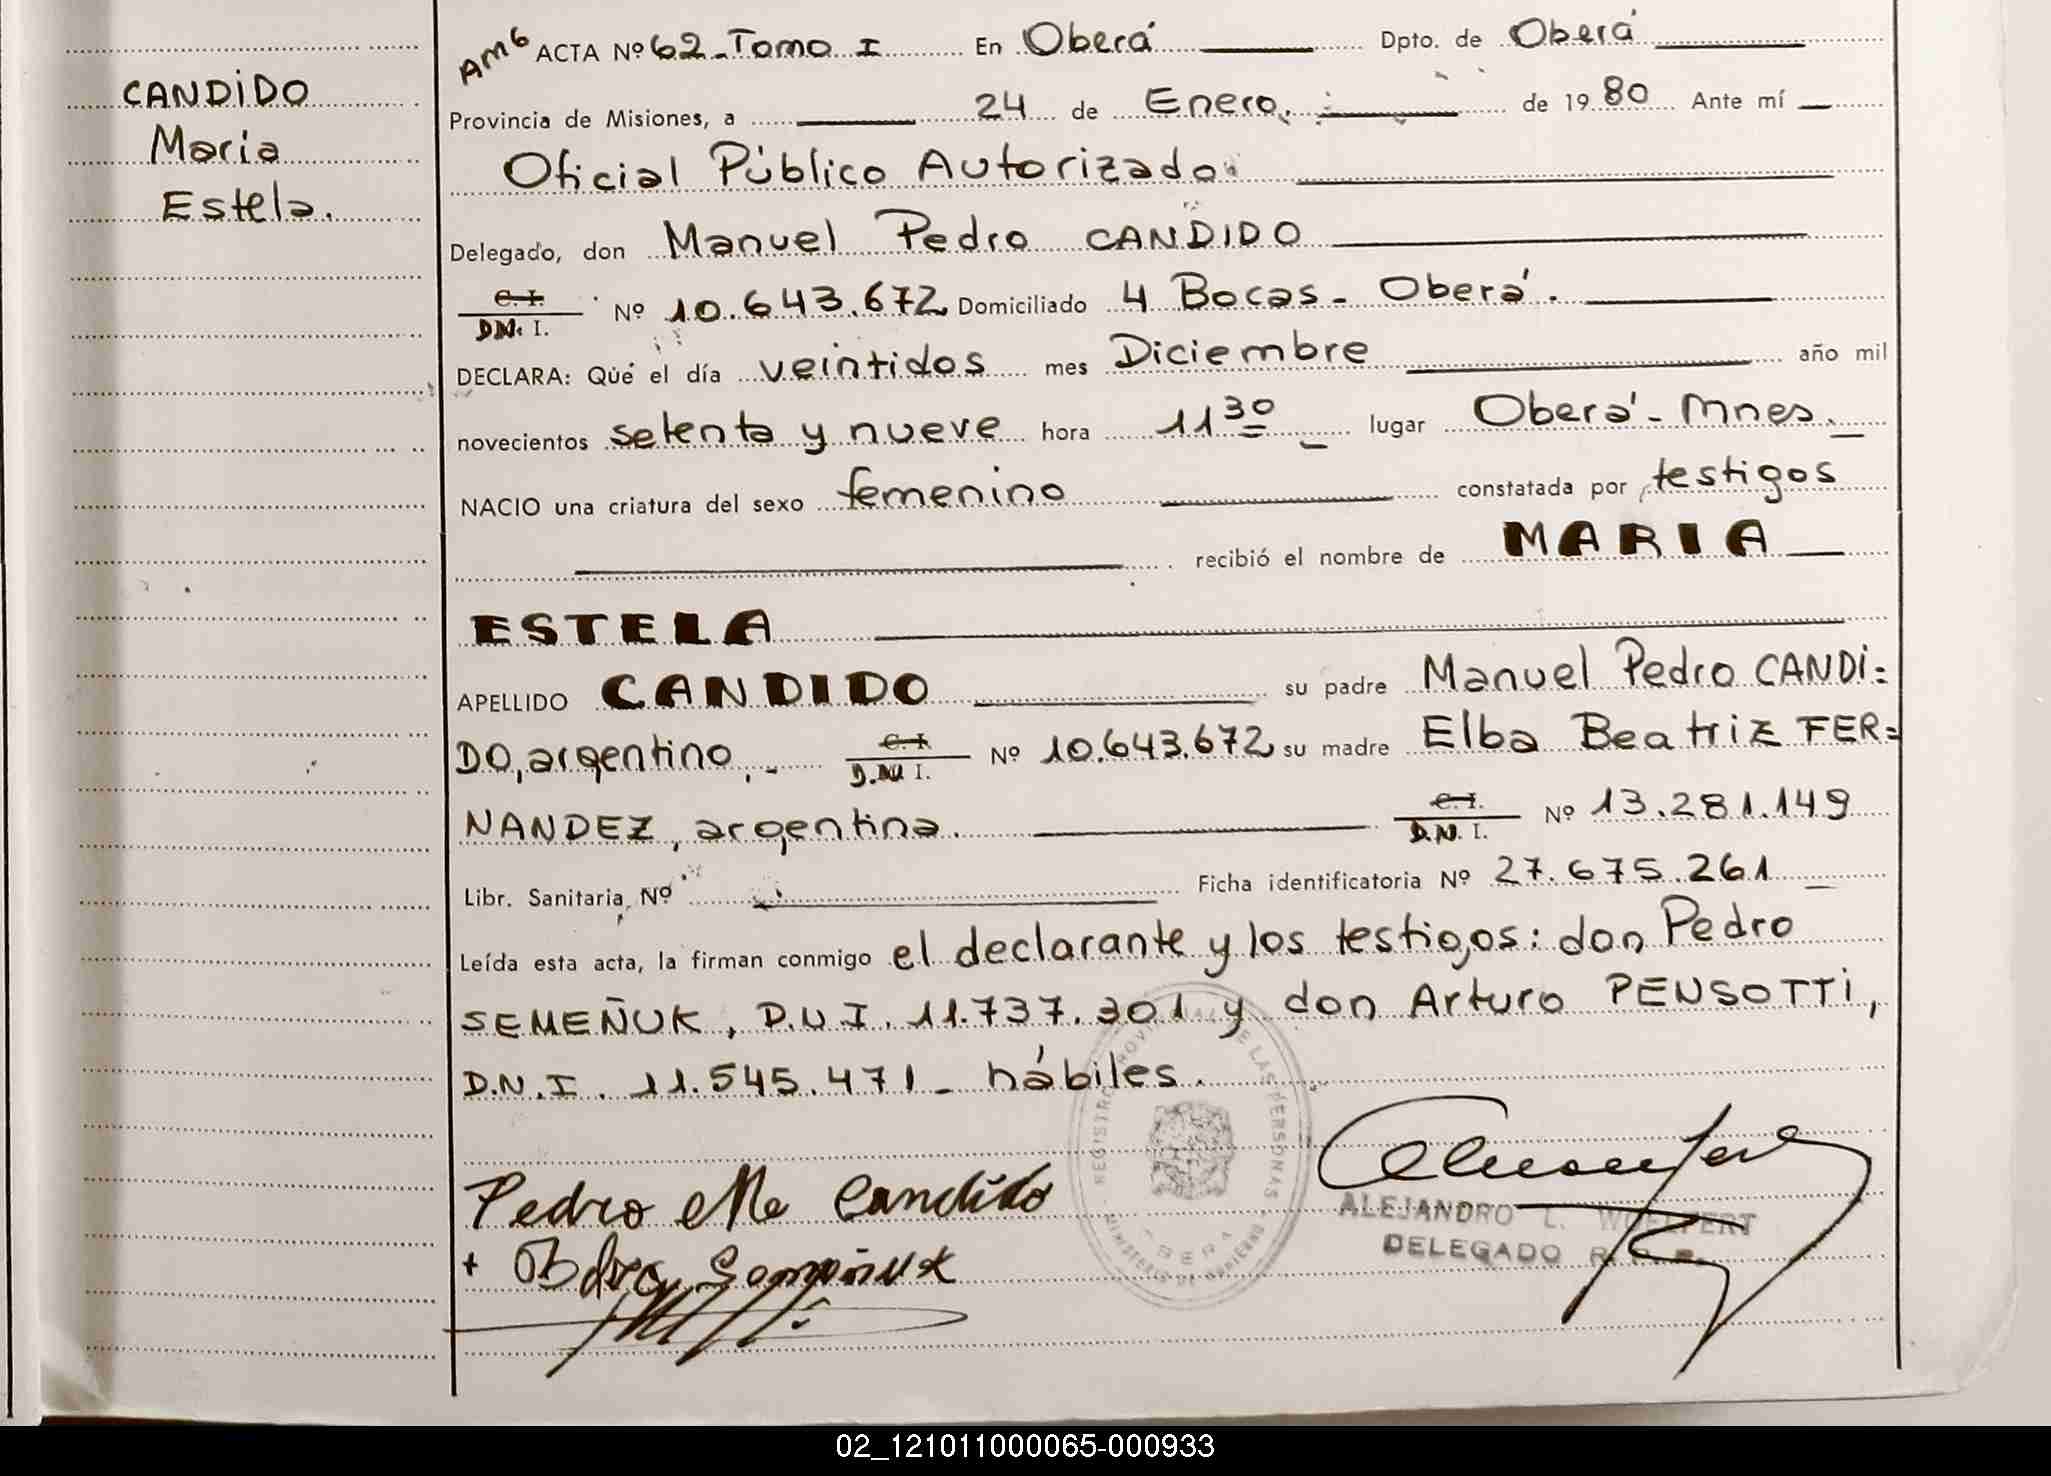 CANDIDO
Maria
Estela.
AM6 ACTA Nº 62 - Tomo I En Oberá Dpto. de Oberá
Provincia de Misiones, a 24 de Enero. de 1980 Ante mí
Oficial Público Autorizado.
Delegado, don Manuel Pedro CANDIDO
C.I. D.N.I. Nº 10.643.672 Domiciliado 4 Bocas - Oberá.
DECLARA: Que el día veintidos mes Diciembre año mil
novecientos setenta y nueve hora 11 30 lugar Oberá - Mnes.
NACIO una criatura del sexo femenino constatada por testigos
recibió el nombre de MARIA
ESTELA
APELLIDO CANDIDO su padre Manuel Pedro CANDI=
DO, argentino, C.I. D.N.I. Nº 10.643.672 su madre Elba Beatriz FER=
NANDEZ, argentina. C.I. D.N.I. Nº 13.281.149
Libr. Sanitaria Nº Ficha identificatoria Nº 27.675.261
Leída esta acta, la firman conmigo el declarante y los testigos: don Pedro
SEMEÑUK, D.N.I. 11.737.301 y don Arturo PENSOTTI,
D.N.I. 11.545.471 - hábiles.
REGISTRO PROVINCIAL DE LAS PERSONAS
MINISTERIO DE GOBIERNO
OBERA
Pedro Ma Candido
ALEJANDRO L.
DELEGADO
02_121011000065-000933